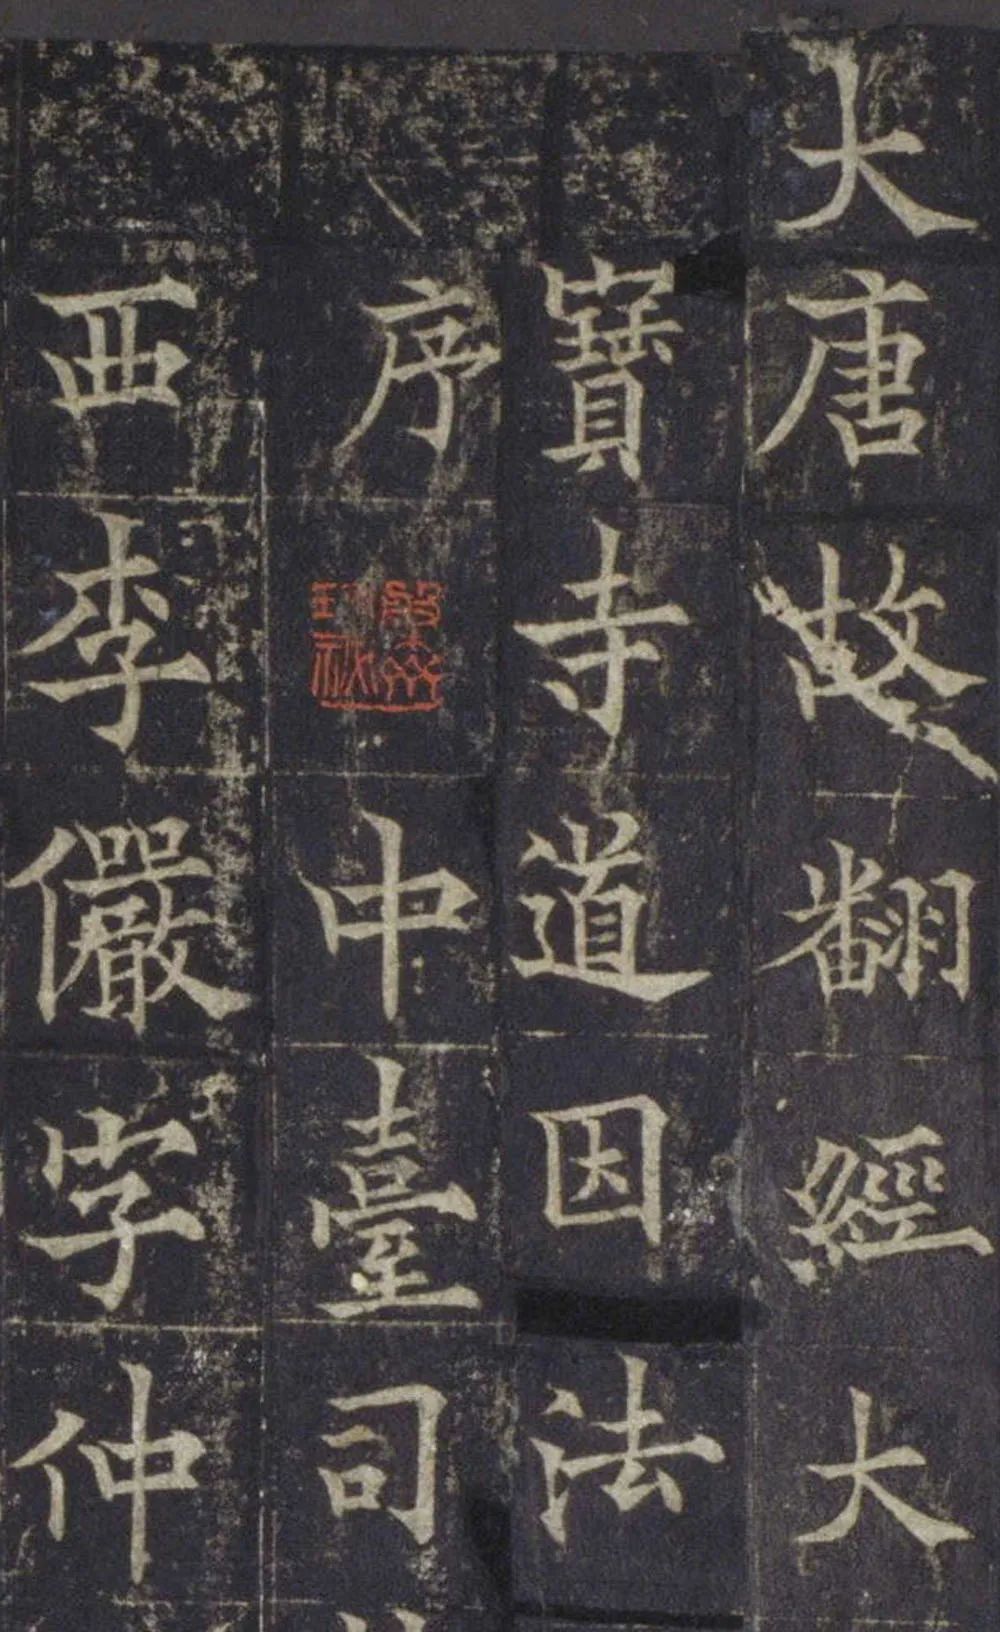 大唐故翻經大
寶寺道因法
序
中臺司
西李儼字仲